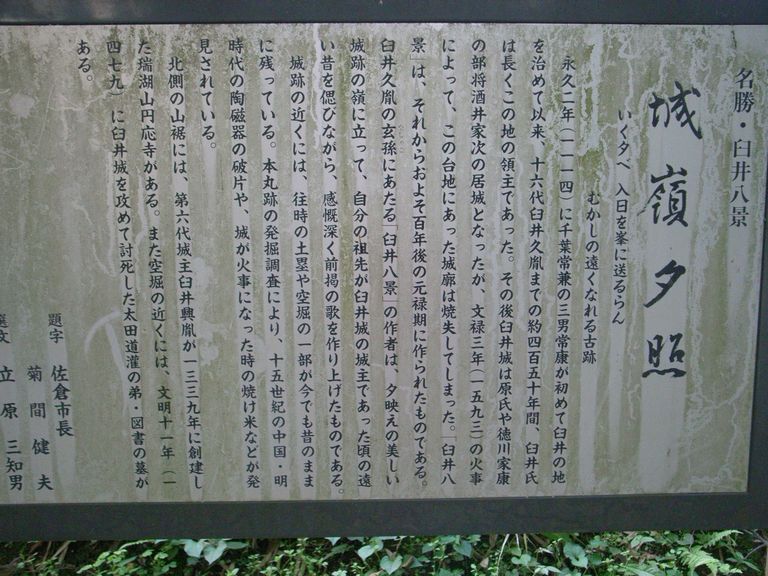 名勝・臼井八景
城嶺夕照
いく夕べ 入日を峯に送るらん
むかしの遠くなれる古跡
永久二年（一一一四）に千葉常兼の三男常康が初めて臼井の地
を治めて以来、十六代臼井久胤までの約四百五十年間、臼井氏
は長くこの地の領主であった。その後臼井城は原氏や徳川家康
の部将酒井家次の居城となったが、文禄三年（一五九三）の火事
によって、この台地にあった城廓は焼失してしまった。「臼井八
景」は、それからおよそ百年後の元禄期に作られたものである。
臼井久胤の玄孫にあたる「臼井八景」の作者は、夕映えの美しい
城跡の嶺に立って、自分の祖先が臼井城の城主であった頃の遠
い昔を偲びながら、感慨深く前掲の歌を作り上げたものである。
城跡の近くには、往時の土塁や空堀の一部が今でも昔のまま
に残っている。本丸跡の発掘調査により、十五世紀の中国・明
時代の陶磁器の破片や、城が火事になった時の焼け米などが発
見されている。
北側の山裾には、第六代城主臼井興胤が一三三九年に創建し
た瑞湖山円応寺がある。また空堀の近くには、文明十一年（一
四七九）に臼井城を攻めて討死した太田道灌の弟・図書の墓が
ある。
題字 佐倉市長
菊間健夫
撰文 立原三知男